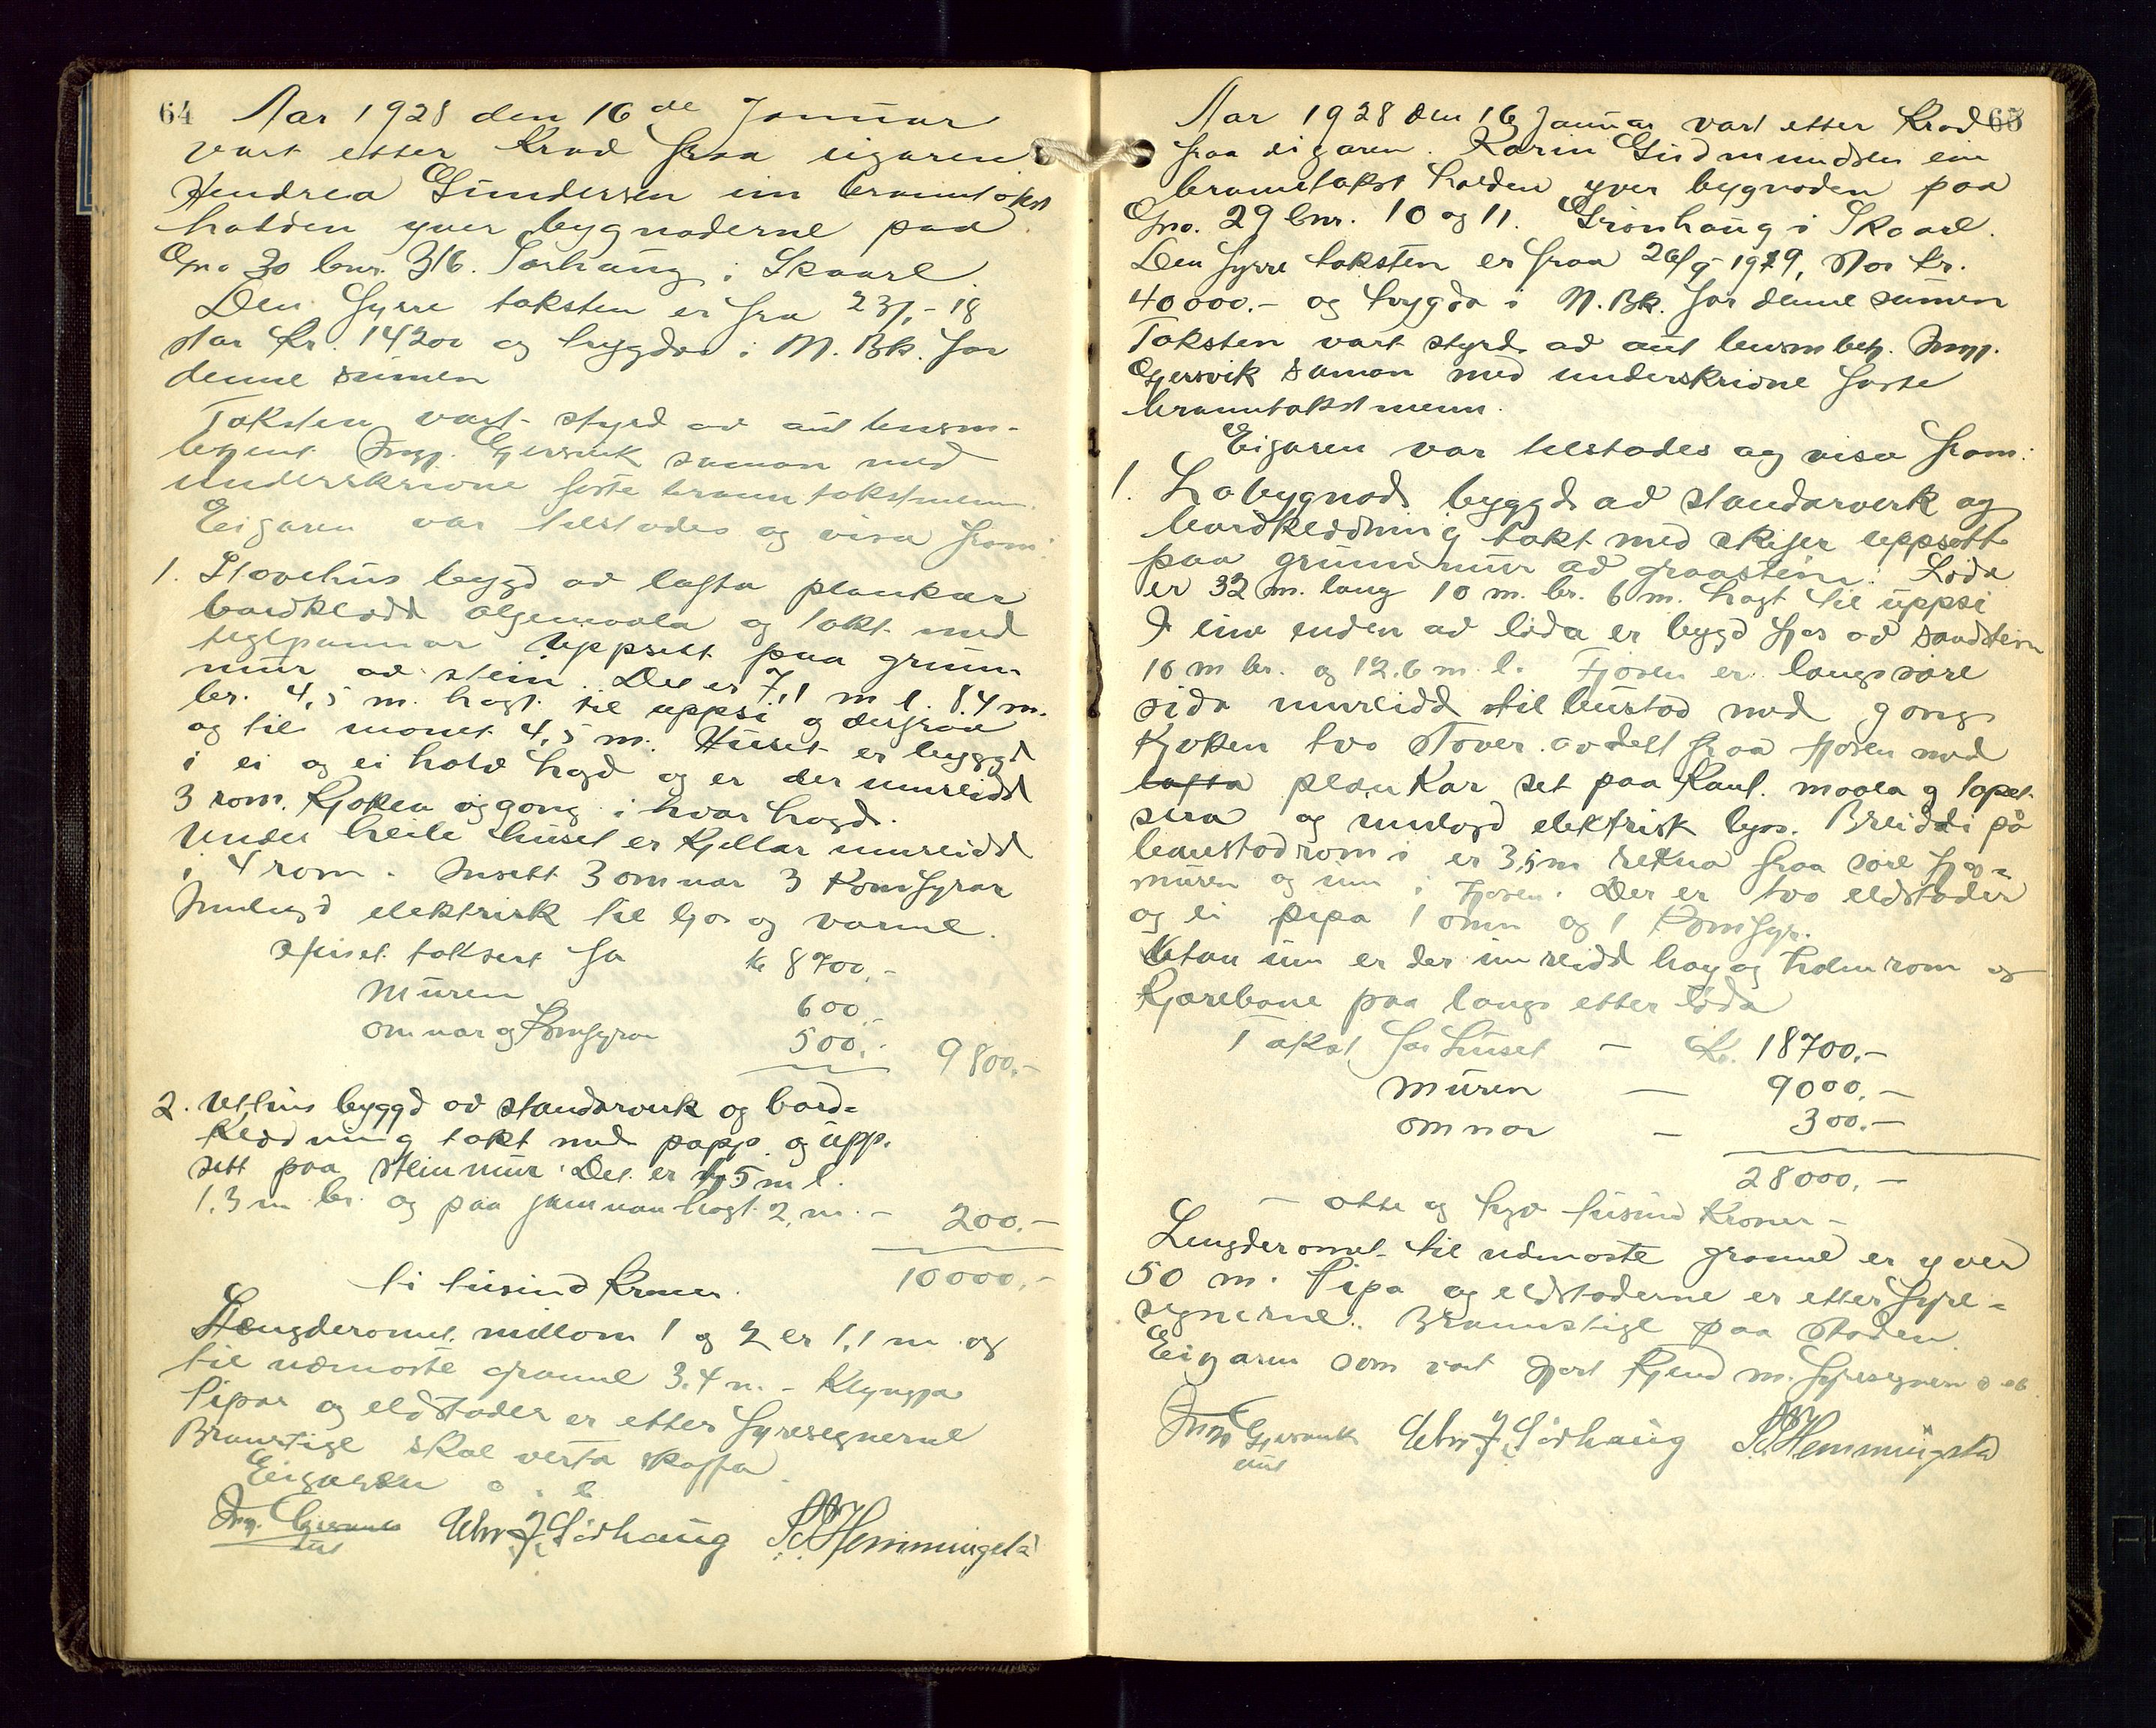 64
Aar 1928 den 16de Januar
vart etter Krav fraa eigaren
Andrea Gundersen ein branntakst
halden yver bygnaderne paa
Gno 30 bnr. 316. Sørhaug i Skaare.
Den fyrre taksten er fra 23/1-18
stor kr. 14200 og trygda i N. Bk. for
denne sumen
Taksten vart styrd av aut lensm-
betjent Ingv. Gjersvik saman med
underskrivne faste branntakstmenn.
Eigaren var tilstades og visa fram:
1. Stovehus bygd av lafta plankar
bordkledd olgemaala og takt med
teglpannor uppsett paa grunn
mur av stein. Det er 7,1 m l. 8.4 m.
br. 4,5 m. høgt til uppsi og derfraa
og til mønet 4,5 m. Huset er byggd
i ei og ei halv høgd og er der innreidd
3 rom. Kjøken og gong i hvar høgd.
Under heile huset er kjellar innreidd
i 4 rom. Insett 3 omnar 3 Komfyrar
Innlagd elektrisk til ljos og varme.
Huset taksert for kr 8700,-
Muren 600,-
omnar og Komfyrar 500,- 9800.-
2. Uthus byggd av standarverk og bord-
kledning takt med papp og upp-
sett paa steinmur. Det er 1,5 m l.
1,3 m br. og paa jamnan høgt 2, m. - 200.-
ti tusind Kroner. 10000,-
Længderomet millom 1 og 2 er 1,1 m og
til næmaste granne 3.4 m. - Klyngja
Pipor og eldstader er etter fyresegnerne
Brannstige skal verta skaffa.
Eigaren o. s. b.
Ingv. Gjersvik Chr. J. Sørhaug S. S. Hemmingsta
aut
65
Aar 1928 den 16 Januar vart etter Krav
fraa eigaren. Karin Gudmundsen ein
branntakst halden yver bygnaden paa
Gno. 29 bnr. 10 og 11. Grønhaug i Skaare.
Den fyrre taksten er fraa 26/9-1919, stor kr.
40000.- og trygda i N. Bk. for denne sumen
Taksten vart styrd av aut lensmbetj. Ingv.
Gjersvik saman med underskrivne faste
branntakstmenn.
Eigaren var tilstades og visa fram:
1. Løbygnad byggd av standarverk og
bordkledning takt med skifer uppsett
paa grunnmur av graastein. Løda
er 32 m. lang 10 m. br. 6 m. høgt til uppsi
I eine enden av løda er bygd fjøs av sandstein
10 m br. og 12.6 m l. Fjøsen er langs søre
sida innreidd til bustad med gong
Kjøken tvo stover. avdelt fraa fjøsen med
lafta plankar set paa Kant. maala og tapet-
sera og innlagd elektrisk lyss. Breiddi på
bustadromi er 3,5 m rekna fraa søre fjøs-
muren og inn i Fjøsen. Der er tvo eldstader
og ei pipa 1 omn og 1 Komfyr.
Utan um er der innreidd høy og halmrom og
Kjørebane paa langs etter løda
Takst for huset - Kr. 18700.-
Muren - 9000.-
omnar - 300.-
28000.-
- otte og tjuv tusind Kroner -
Lengderomet til næmaste granne er yver
50 m. Pipa og eldstaderne er etter fyre-
segnerne. Brannstige paa staden
Eigaren som vart gjort kjend m. fyresegnerne o. s. b.
Ingv Gjersvik Chr. J. Sørhaug S. S. Hemmingsta
aut